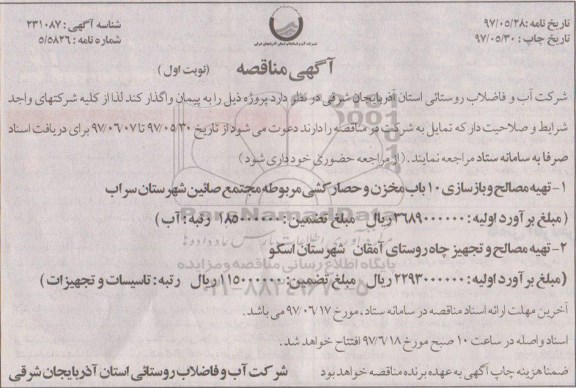 تاریخ نامه: ۹۷/۰۵/۲۸
تاریخ چاپ: ۹۷/۰۵/۳۰
شناسه آگهی: ۲۳۱۰۸۷
شماره نامه: ۵/۵۸۲۶
شرکت آب و فاضلاب روستائی استان آذربایجان شرقی
آگهی مناقصه (نوبت اول)
شرکت آب و فاضلاب روستائی استان آذربایجان شرقی در نظر دارد پروژه ذیل را به پیمان واگذار کند لذا از کلیه شرکتهای واجد
شرایط و صلاحیت دار که تمایل به شرکت در مناقصه را دارند دعوت می شود از تاریخ ۹۷/۰۵/۳۰ تا ۹۷/۰۶/۰۷ برای دریافت اسناد
صرفا به سامانه ستاد مراجعه نمایند. (از مراجعه حضوری خودداری شود)
۱- تهیه مصالح و بازسازی ۱۰ باب مخزن و حصارکشی مربوطه مجتمع صائین شهرستان سراب
(مبلغ برآورد اولیه: ۳۶۸۹۰۰۰۰۰۰ ریال مبلغ تضمین: ۱۸۵۰۰۰۰۰۰ رتبه: آب)
۲- تهیه مصالح و تجهیز چاه روستای آمقان شهرستان اسکو
(مبلغ برآورد اولیه: ۲۲۹۳۰۰۰۰۰۰ ریال مبلغ تضمین: ۱۱۵۰۰۰۰۰۰ ریال رتبه: تاسیسات و تجهیزات)
آخرین مهلت ارائه اسناد مناقصه در سامانه ستاد، مورخ ۹۷/۰۶/۱۷ می باشد.
اسناد واصله در ساعت ۱۰ صبح مورخ ۹۷/۶/۱۸ افتتاح خواهد شد.
ضمنا هزینه چاپ آگهی به عهده برنده مناقصه خواهد بود
شرکت آب و فاضلاب روستائی استان آذربایجان شرقی
پایگاه اطلاع رسانی مناقصه و مزایده
۰۲۱-۸۸۳۴۹۶۷۰-۵